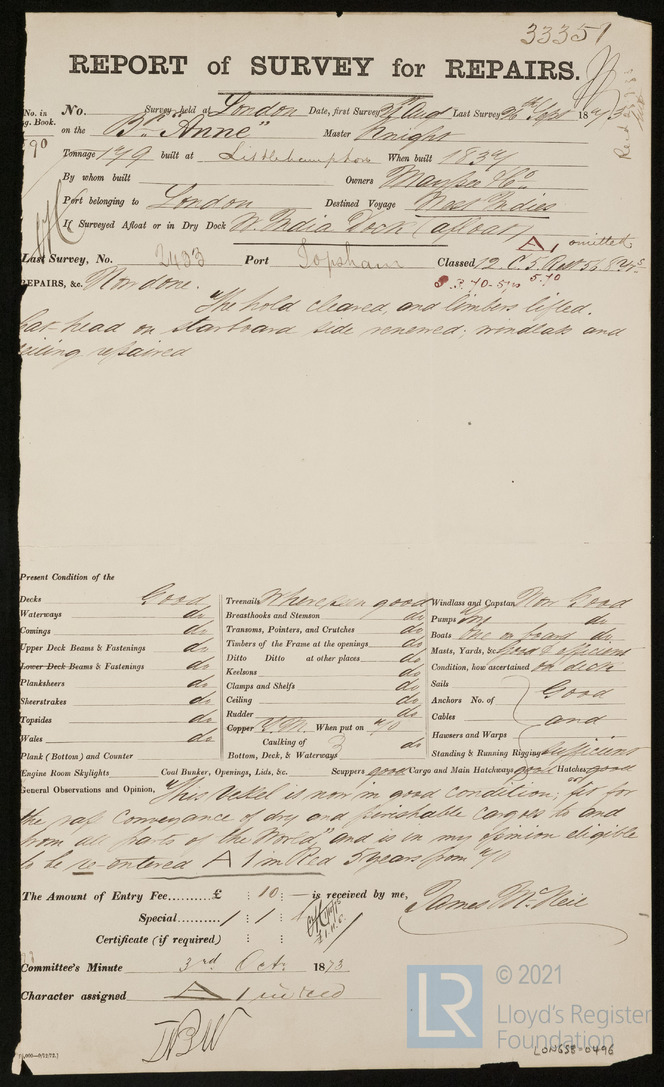 33351
REPORT of SURVEY for REPAIRS.
No. in No. Survey held at London Date, first Survey Aug Last Survey Sept 1873
g. Book. on the "Anne" Master Knight
90 Tonnage 179 built at Littlehampton When built 1837
By whom built Owners & Co
Port belonging to London Destined Voyage West Indies
If Surveyed Afloat or in Dry Dock W. India Dock (afloat)
A 1 omitted
Last Survey, No. 2433 Port Topsham Classed
REPAIRS, &c. Now done.
The hold cleared, and limbers lifted.
head on starboard side renewed; windlass and
ceiling repaired
Present Condition of the
Decks Good
Waterways do
Comings do
Upper Deck Beams & Fastenings do
Lower Deck Beams & Fastenings do
Planksheers do
Sheerstrakes do
Topsides do
Wales do
Plank (Bottom) and Counter
Engine Room Skylights
Treenails Where seen good
Breasthooks and Stemson do
Transoms, Pointers, and Crutches do
Timbers of the Frame at the openings do
Ditto Ditto at other places do
Keelsons do
Clamps and Shelfs do
Ceiling do
Rudder do
Copper Y.M. When put on
Caulking of
Bottom, Deck, & Waterways do
Coal Bunker, Openings, Lids, &c. Scuppers good
Windlass and Capstan Now Good
Pumps do
Boats One on board do
Masts, Yards, &c.
Condition, how ascertained on deck
Sails
Anchors No. of Good
Cables and
Hawsers and Warps
Standing & Running Rigging sufficient
Cargo and Main Hatchways good Hatches good
General Observations and Opinion, "This Vessel is now in good condition; fit for
the safe conveyance of dry and perishable cargoes to and
from all parts of the World" and is in my opinion eligible
to be re-entered A 1 in Red 5 years from
The Amount of Entry Fee.......... £ : 10 : — is received by me, James McNeil
Special.......... 1 : 1 :
Certificate (if required)
Committee's Minute 3rd Oct. 1873
Character assigned A 1 in red
© 2021
LR Lloyd's Register
Foundation
LON658-0496